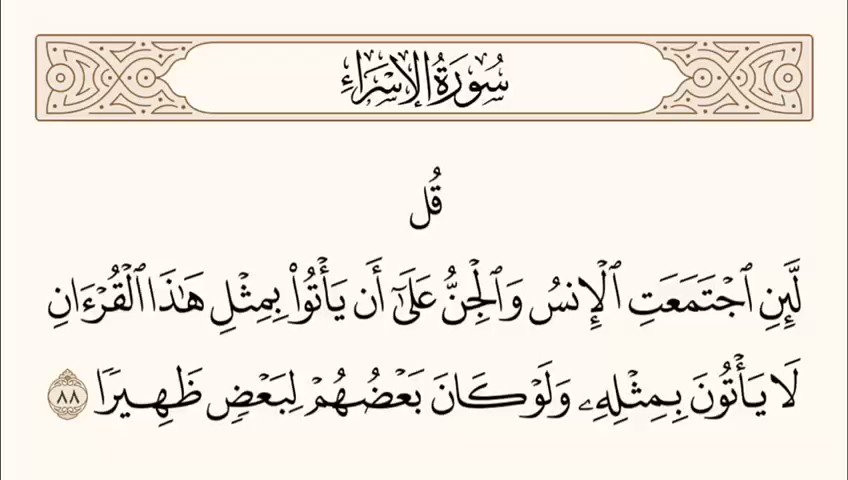 سُورَةُ الإِسْرَاءِ
قُل
لَّئِنِ ٱجْتَمَعَتِ ٱلْإِنسُ وَٱلْجِنُّ عَلَىٰٓ أَن يَأْتُوا۟ بِمِثْلِ هَـٰذَا ٱلْقُرْءَانِ
لَا يَأْتُونَ بِمِثْلِهِۦ وَلَوْ كَانَ بَعْضُهُمْ لِبَعْضٍ ظَهِيرًا ٨٨